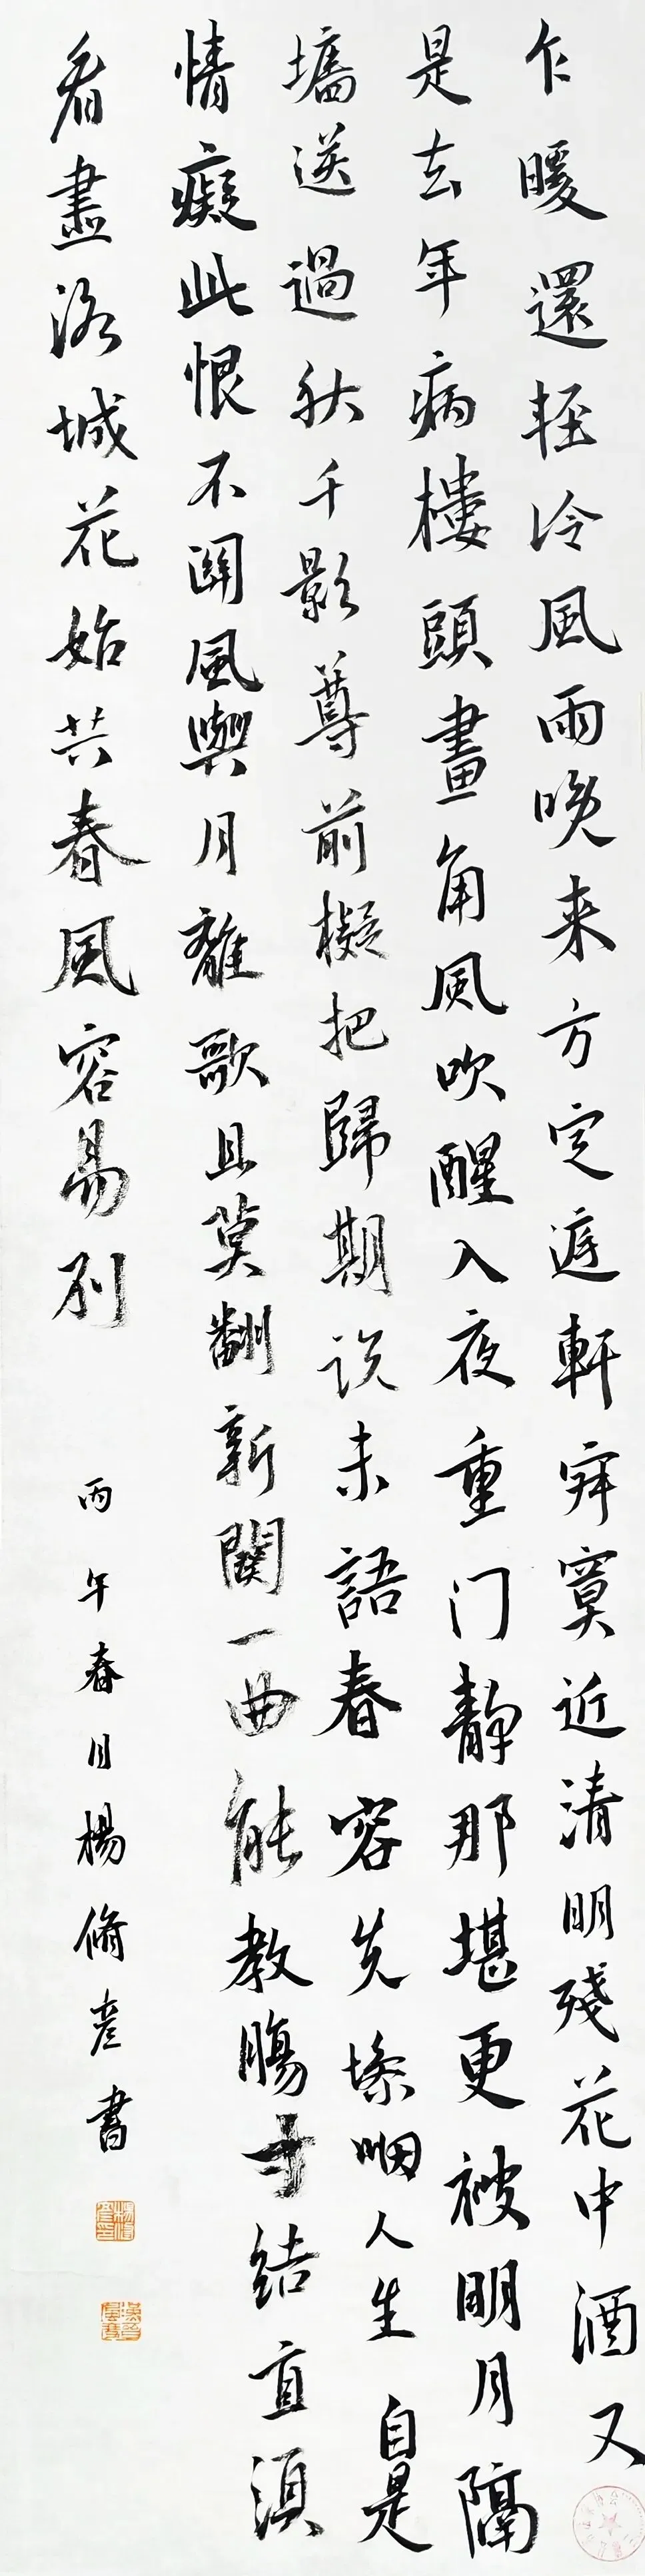 乍暖還輕冷風雨晚来方定庭軒寂寞近清明殘花中酒又
是去年病樓頭畫角風吹醒入夜重门靜那堪更被明月隔
墻送過秋千影尊前擬把歸期説未語春容先慘咽人生自是
情癡此恨不關風與月離歌且莫翻新闋一曲能教腸寸結直須
看盡洛城花始共春風容易别
丙午春月楊脩彦書